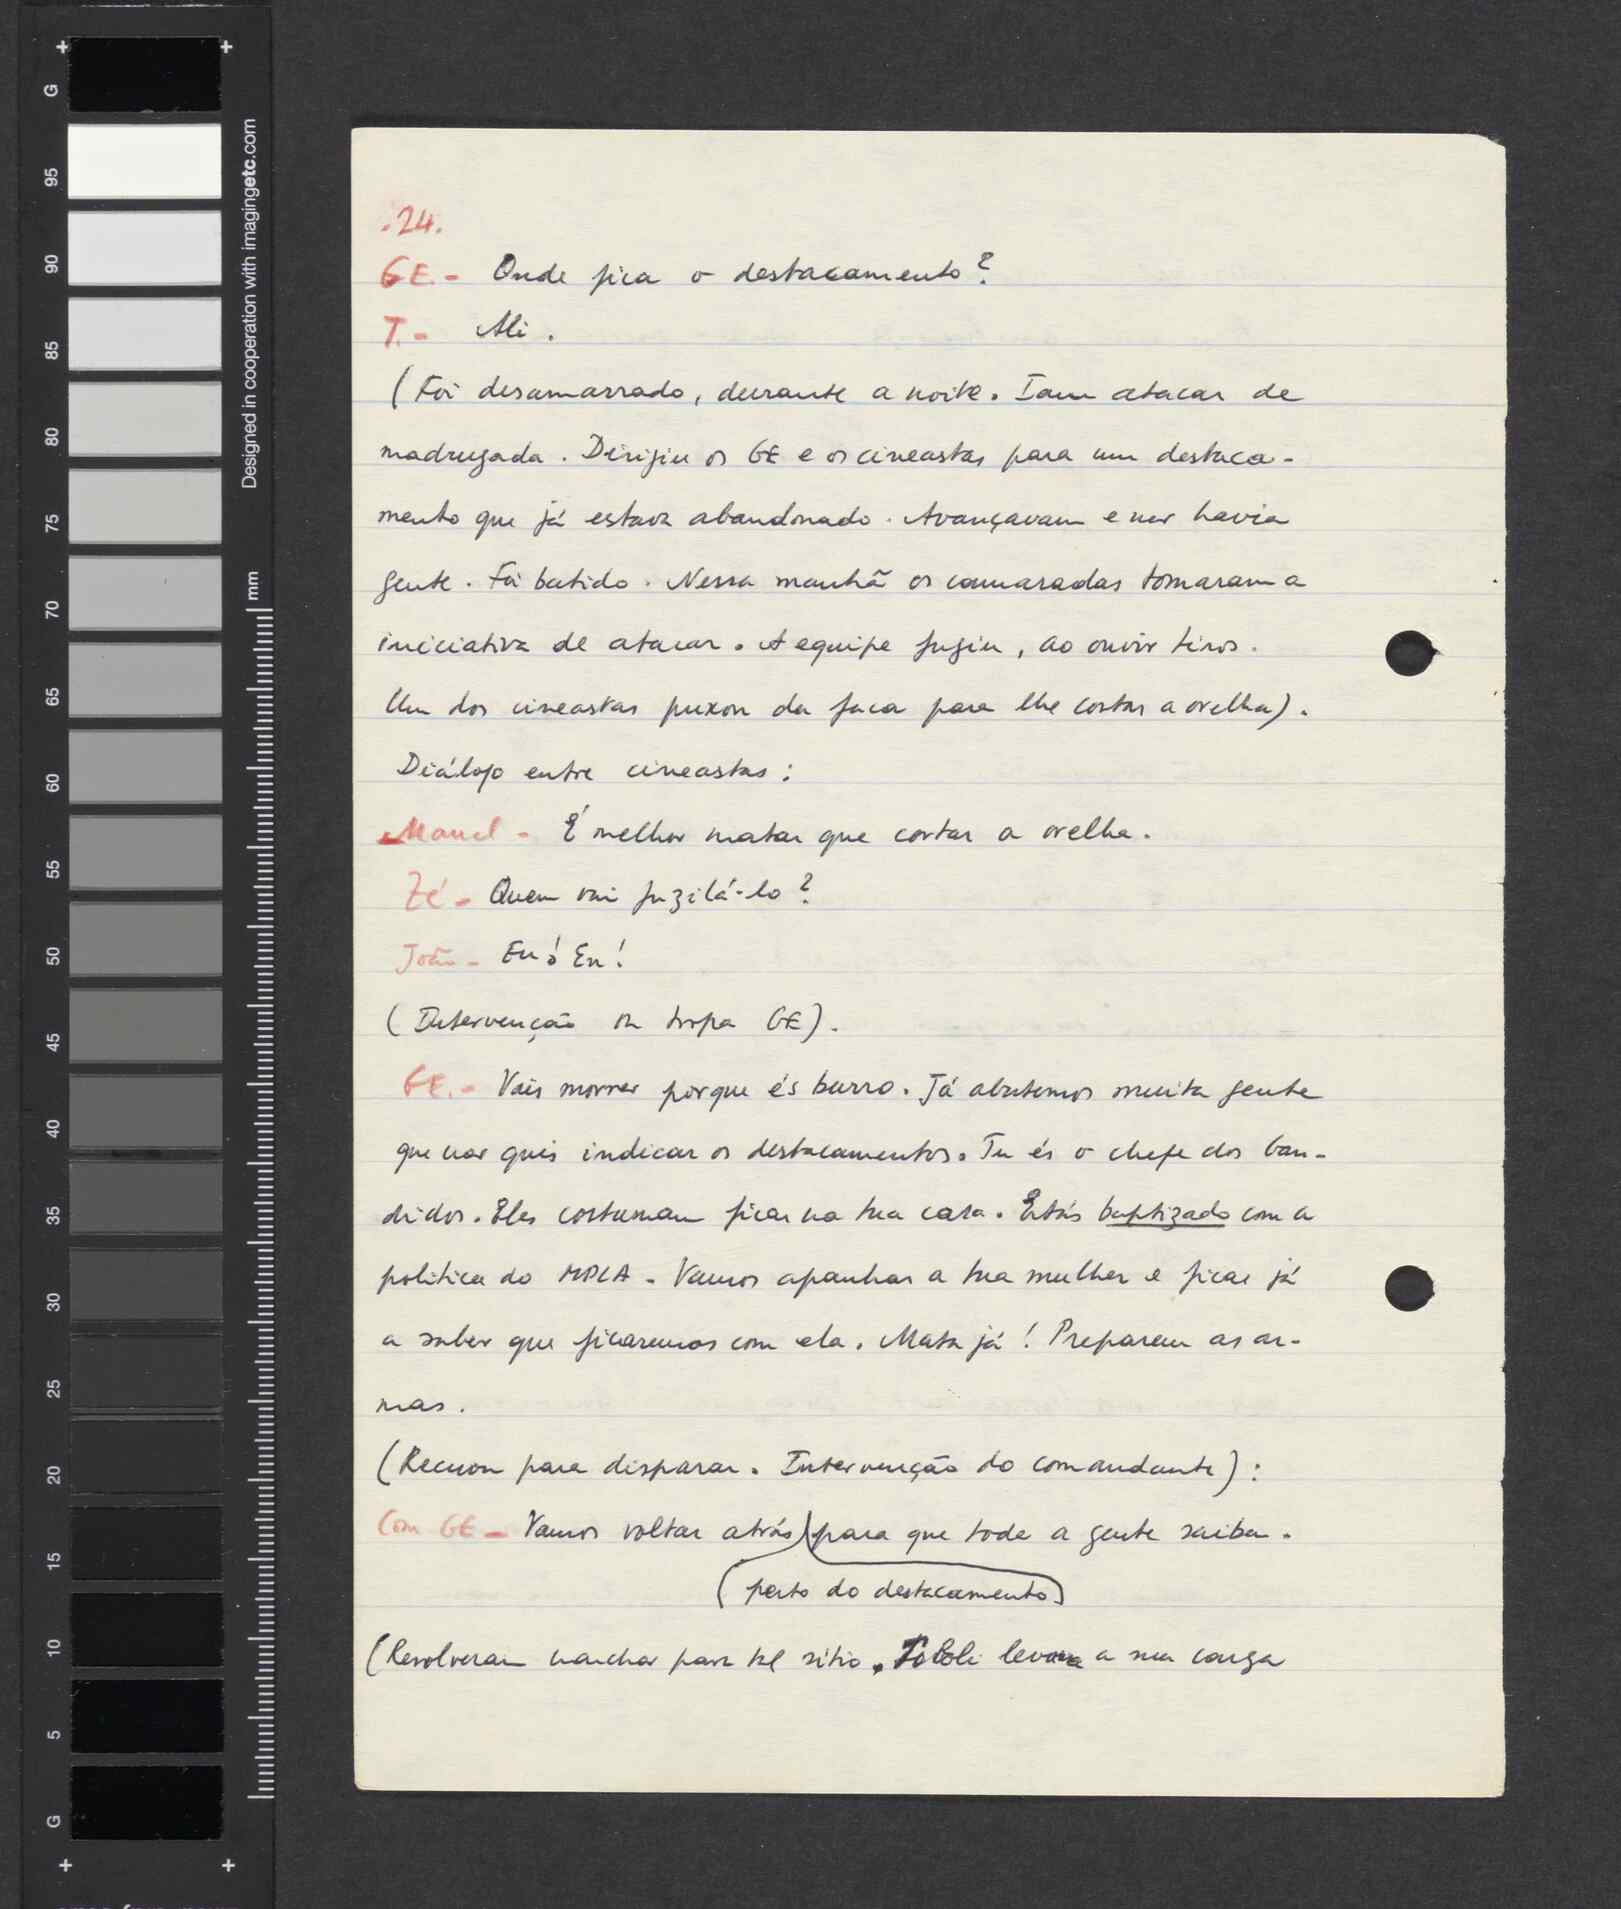 .24.
GE.- Onde fica o destacamento?
T.- Ali.
(Foi desamarrado, durante a noite. Iam atacar de
madrugada. Dirigiu os GE e os cineastas para um destaca-
mento que já estava abandonado. Avançavam e não havia
gente. Foi batido. Nessa manhã os camaradas tomaram a
iniciativa de atacar. A equipe fugiu, ao ouvir tiros.
Um dos cineastas puxou da faca para lhe cortar a orelha).
Diálogo entre cineastas:
Manel - É melhor matar que cortar a orelha.
Zé - Quem vai fuzilá-lo?
João - Eu! Eu!
(Intervenção da tropa GE).
GE.- Vais morrer porque és burro. Já abatemos muita gente
que não quis indicar os destacamentos. Tu és o chefe dos ban-
didos. Eles costumam ficar na tua casa. Estás baptizado com a
politica do MPLA. Vamos apanhar a tua mulher e ficas já
a saber que ficaremos com ela. Mata já! Preparem as ar-
mas.
(Recuou para disparar. Intervenção do comandante):
Com GE - Vamos voltar atrás para que toda a gente saiba.
(perto do destacamento)
(Resolveram marchar para tal sítio. levava a sua carga
G
95
90
85
80
75
70
65
60
55
50
45
40
35
30
25
20
15
10
5
G
Designed in cooperation with imagingetc.com
mm